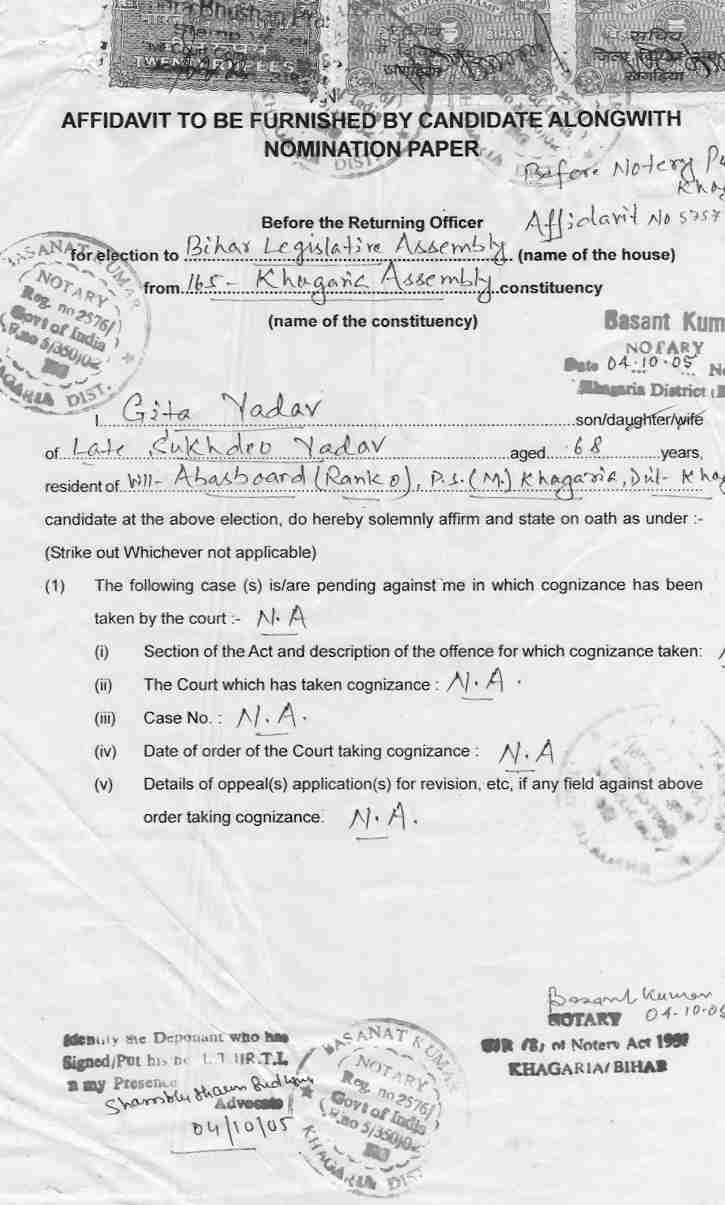 TWENTY RUPEES
BIHAR
सचिव
खगड़िया
सचिव
खगड़िया
AFFIDAVIT TO BE FURNISHED BY CANDIDATE ALONGWITH
NOMINATION PAPER
Before Notery
Affidavit No 5757
Before the Returning Officer
for election to Bihar Legislative Assembly (name of the house)
from 165- Khagaria Assembly constituency
(name of the constituency)
BASANAT KUMAR
NOTARY
Reg. no 2576/
Govt of India
KHAGARIA DIST.
Basant Kum
NOTARY
Date 04.10.05
Khagaria District
I Gita Yadav son/daughter/wife
of Late Sukhdeo Yadav aged 68 years,
resident of Vill- Abasboard (Ranko), P.S. (M.) Khagaria, Dist- Khag
candidate at the above election, do hereby solemnly affirm and state on oath as under :-
(Strike out Whichever not applicable)
(1) The following case (s) is/are pending against me in which cognizance has been
taken by the court :- N.A
(i) Section of the Act and description of the offence for which cognizance taken:
(ii) The Court which has taken cognizance : N.A.
(iii) Case No. : N.A.
(iv) Date of order of the Court taking cognizance : N.A
(v) Details of oppeal(s) application(s) for revision, etc, if any field against above
order taking cognizance: N.A.
Basant Kumar
04-10-05
NOTARY
of Notery Act
KHAGARIA/BIHAR
Identify the Deponant who has
Signed/Put his
in my Presence
Advocate
04/10/05
BASANAT KUMAR
NOTARY
Reg. no 2576/
Govt of India
KHAGARIA DIST.